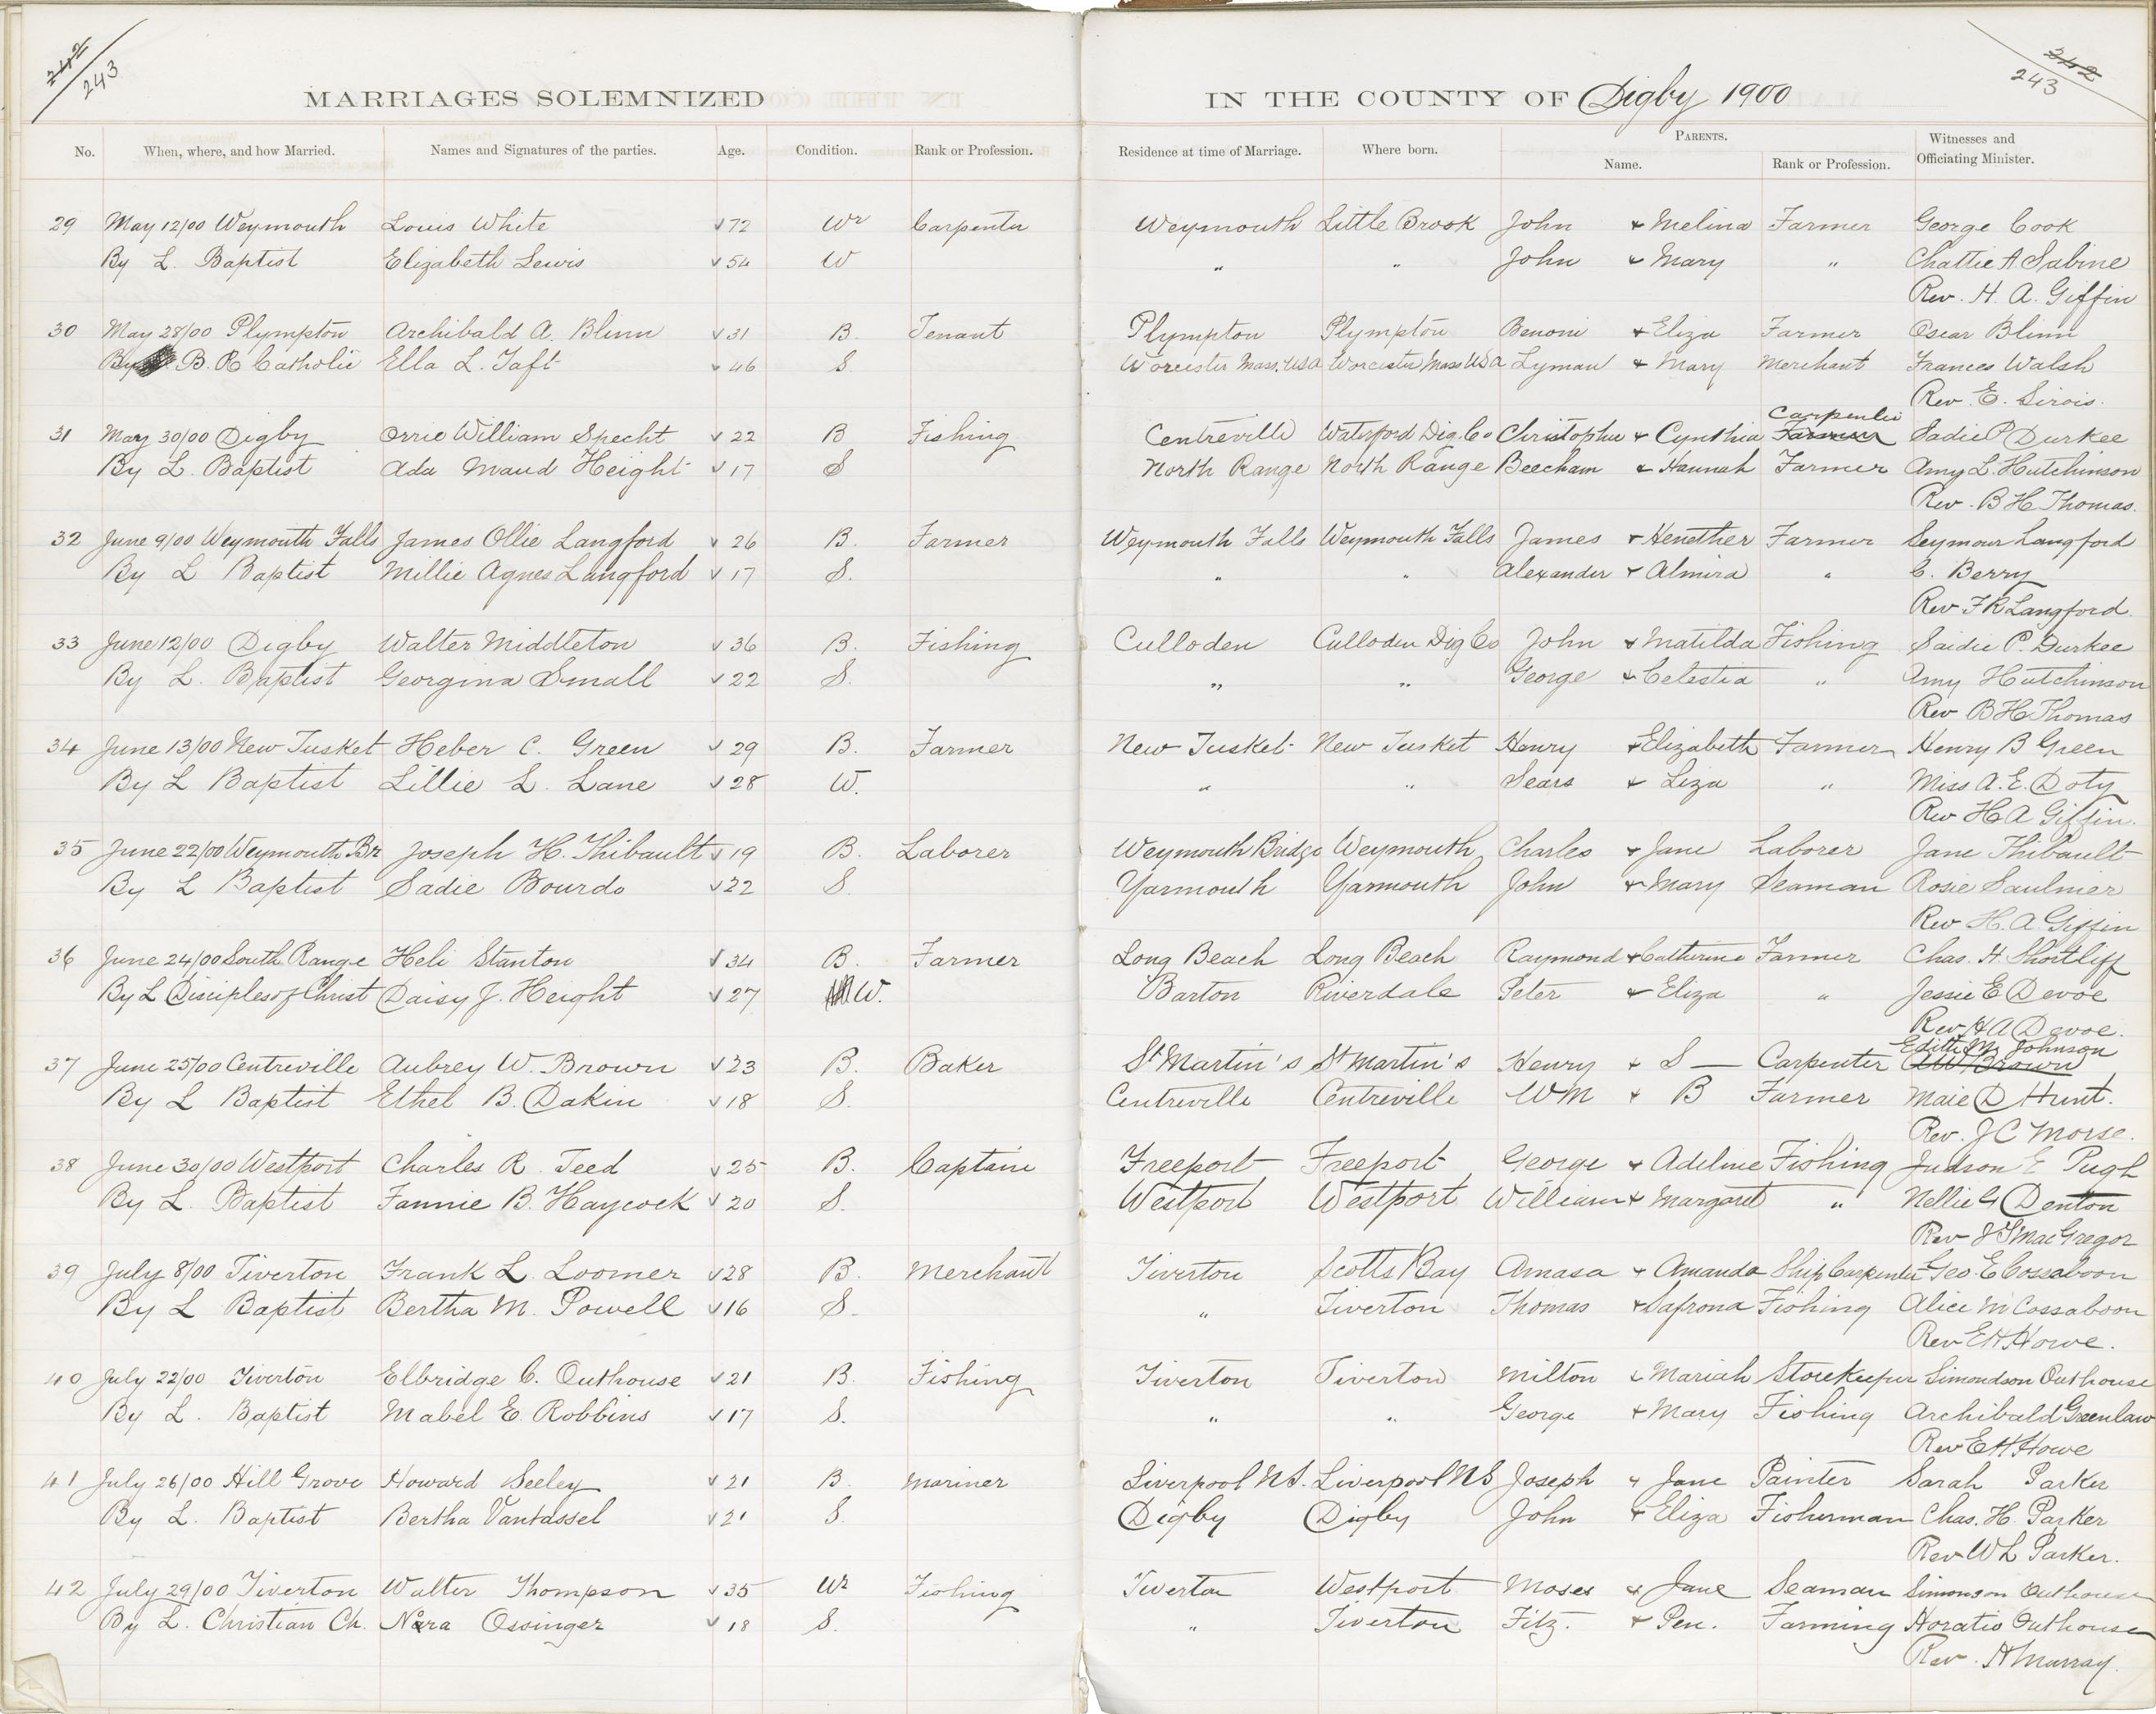 242
243
MARRIAGES SOLEMNIZED
IN THE COUNTY OF Digby 1900
242
243
No. When, where, and how Married. Names and Signatures of the parties. Age. Condition. Rank or Profession. Residence at time of Marriage. Where born. PARENTS. Name. Rank or Profession. Witnesses and Officiating Minister.
29 May 12/00 Weymouth Louis White 72 Wr Carpenter Weymouth Little Brook John & Melina Farmer George Cook
By L. Baptist Elizabeth Lewis 54 W " " John & Mary " Chattie A Sabine
Rev. H. A. Giffin
30 May 28/00 Plympton Archibald A. Blinn 31 B. Tenant Plympton Plympton Benoni & Eliza Farmer Oscar Blinn
By B. R Catholic Ella L. Taft 46 S Worcester Mass. USA Worcester Mass USA Lyman & Mary Merchant Frances Walsh
Rev. E. Sirois.
31 May 30/00 Digby Orrie William Specht 22 B Fishing Centreville Waterford Dig. Co Christopher & Cynthia Carpenter Farmer Sadie P Durkee
By L. Baptist Ada Maud Height 17 S North Range North Range Beecham & Hannah Farmer Amy L. Hutchinson
Rev. B H Thomas.
32 June 9/00 Weymouth Falls James Ollie Langford 26 B. Farmer Weymouth Falls Weymouth Falls James & Henether Farmer Seymour Langford
By L Baptist Millie Agnes Langford 17 S. " " Alexander & Almira " C. Berry
Rev F R Langford.
33 June 12/00 Digby Walter Middleton 36 B. Fishing Culloden Culloden Dig Co John & Matilda Fishing Saidie P. Durkee
By L. Baptist Georgina Small 22 S. " " George & Celestia " Amy Hutchinson
Rev B H Thomas
34 June 13/00 New Tusket Heber C. Green 29 B. Farmer New Tusket New Tusket Henry & Elizabeth Farmer Henry B Green
By L Baptist Lillie L. Lane 28 W. " " Sears & Liza " Miss A. E. Doty
Rev H A Giffin.
35 June 22/00 Weymouth Br Joseph H. Thibault 19 B. Laborer Weymouth Bridge Weymouth Charles & Jane Laborer Jane Thibault
By L Baptist Sadie Bourdo 22 S. Yarmouth Yarmouth John & Mary Seaman Rosie Saulnier
Rev H. A. Giffin
36 June 24/00 South Range Heli Stanton 34 B. Farmer Long Beach Long Beach Raymond & Catherine Farmer Chas. H. Shortliff
By L Disciples of Christ Daisy J. Height 27 W. Barton Riverdale Peter & Eliza " Jessie E Devoe
Rev H A Devoe.
37 June 25/00 Centreville Aubrey W. Brown 23 B. Baker St Martin's St Martin's Henry & S — Carpenter Edith M. Johnson
By L Baptist Ethel B. Dakin 18 S. Centreville Centreville WM & B Farmer Maie D Hunt.
Rev. J C Morse.
38 June 30/00 Westport Charles R. Teed 25 B. Captain Freeport Freeport George & Adeline Fishing Judson E Pugh
By L. Baptist Fannie B. Haycock 20 S. Westport Westport William & Margaret " Nellie G Denton
Rev J T MacGregor
39 July 8/00 Tiverton Frank L. Loomer 28 B. Merchant Tiverton Scotts Bay Amasa & Amanda Ship Carpenter Geo. E Cossaboon
By L Baptist Bertha M. Powell 16 S. " Tiverton Thomas & Safrona Fishing Alice M Cossaboon
Rev E H Howe.
40 July 22/00 Tiverton Elbridge C. Outhouse 21 B. Fishing Tiverton Tiverton Milton & Mariah Storekeeper Simondson Outhouse
By L. Baptist Mabel E. Robbins 17 S. " " George & Mary Fishing Archibald Greenlaw
Rev E H Howe
41 July 26/00 Hill Grove Howard Seeley 21 B. Mariner Liverpool N.S. Liverpool N S Joseph & Jane Painter Sarah Parker
By L. Baptist Bertha Vantassel 21 S. Digby Digby John & Eliza Fisherman Chas. H. Parker
Rev W L Parker.
42 July 29/00 Tiverton Walter Thompson 35 Wr Fishing Tiverton Westport Moses & Jane Seaman Simonson Outhouse
By L. Christian Ch. Nora Ossinger 18 S. " Tiverton Fitz. & Pen. Farming Horatio Outhouse
Rev. H Murray.